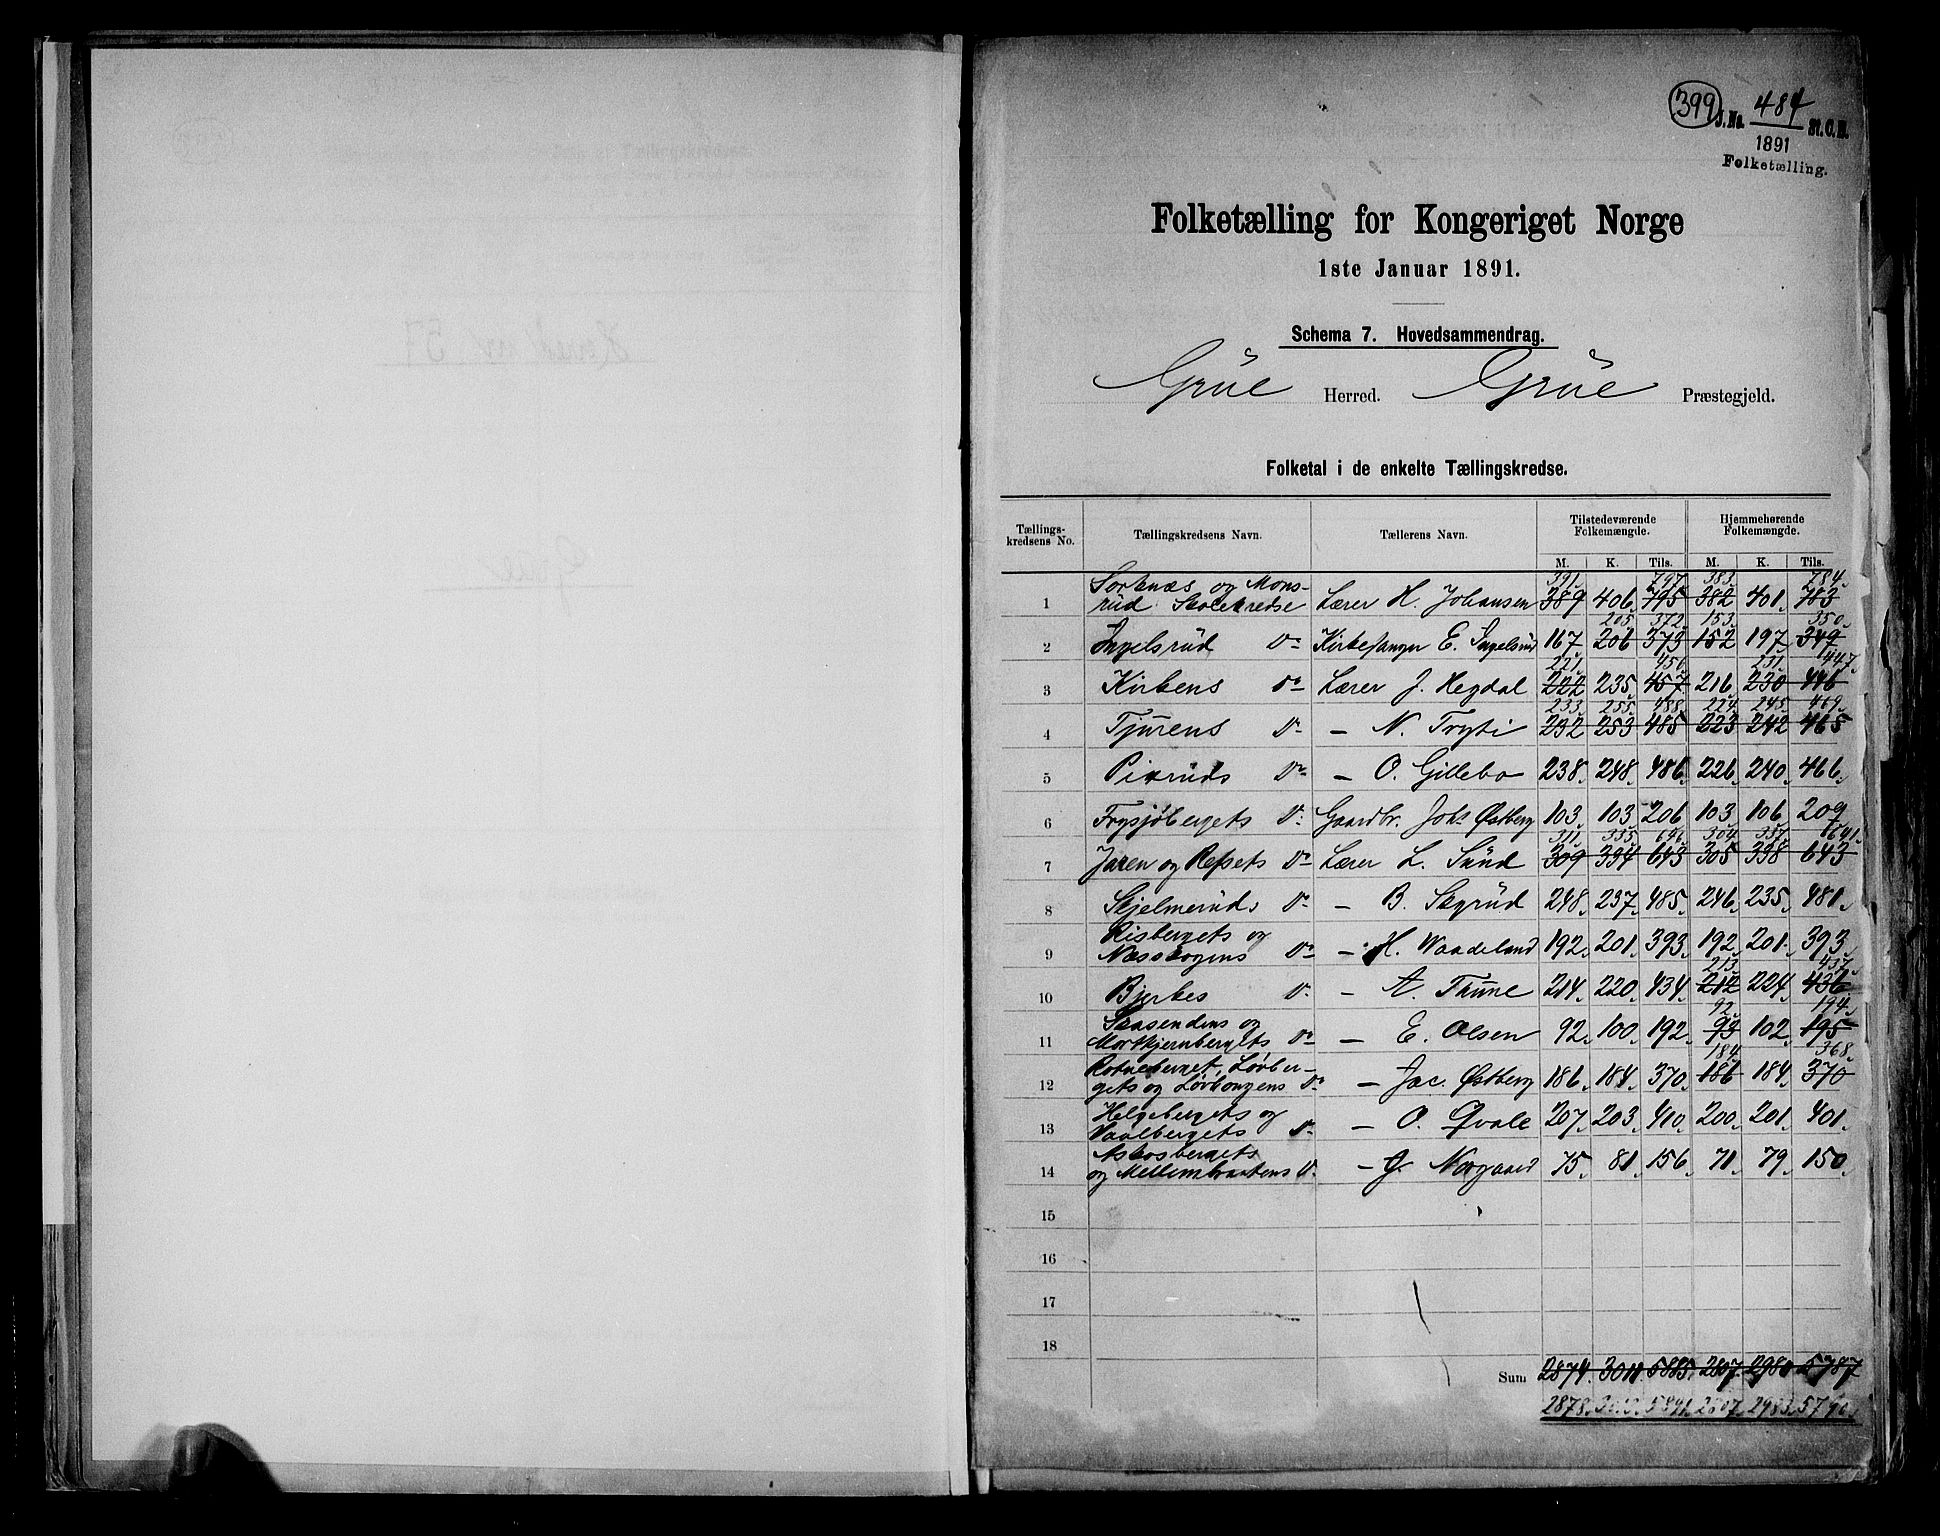 399
J.No. 484 St.C.B.
1891
Folketælling.
Folketælling for Kongeriget Norge
1ste Januar 1891.
Schema 7. Hovedsammendrag.
Grue Herred. Grue Præstegjeld.
Folketal i de enkelte Tællingskredse.
Tællingskredsens No. Tællingskredsens Navn. Tællerens Navn. Tilstedeværende Folkemængde. Hjemmehørende Folkemængde.
M. K. Tils. M. K. Tils.
391 797 383 784
1 Sorknæs og Monsrud Skolekredse Lærer H. Johansen 389 406 795 382 401 783
205 372 153 350
2 Ingelsrud Do Kirkesanger E. Ingelsrud 167 206 373 152 197 349
221 456 231 447
3 Kirkens Do Lærer J. Hegdal 222 235 457 216 230 446
233 255 488 224 245 469
4 Tjurens Do — N. Tryti 232 253 485 223 242 465
5 Pixruds Do — O. Gillebo 238 248 486 226 240 466
6 Frysjøbergets Do Gaardbr. Johs Østberg 103 103 206 103 106 209
311 335 646 304 337 641
7 Jaren og Repsets Do Lærer L. Sund 309 334 643 305 338 643
8 Skjelmeruds Do — B. Skyrud 248 237 485 246 235 481
9 Risbergets og Næsskogens Do — H. Waadeland 192 201 393 192 201 393
213 437
10 Bjerkes Do — A. Thune 214 220 434 212 224 436
92 194
11 Skasendens og Mortkjernbergets Do — E. Olsen 92 100 192 93 102 195
184 368
12 Rotneberget, Lövbergets og Lövhaugens Do — Jac. Østberg 186 184 370 186 184 370
13 Helgebergets og Vaalbergets Do — O. Qvale 207 203 410 200 201 401
14 Askosbergets og Mellembraatens Do — J. Norgaard 75 81 156 71 79 150
15
16
17
18
Sum 2874 3011 5885 2807 2980 5787
2878 3013 5891 2807 2983 5790